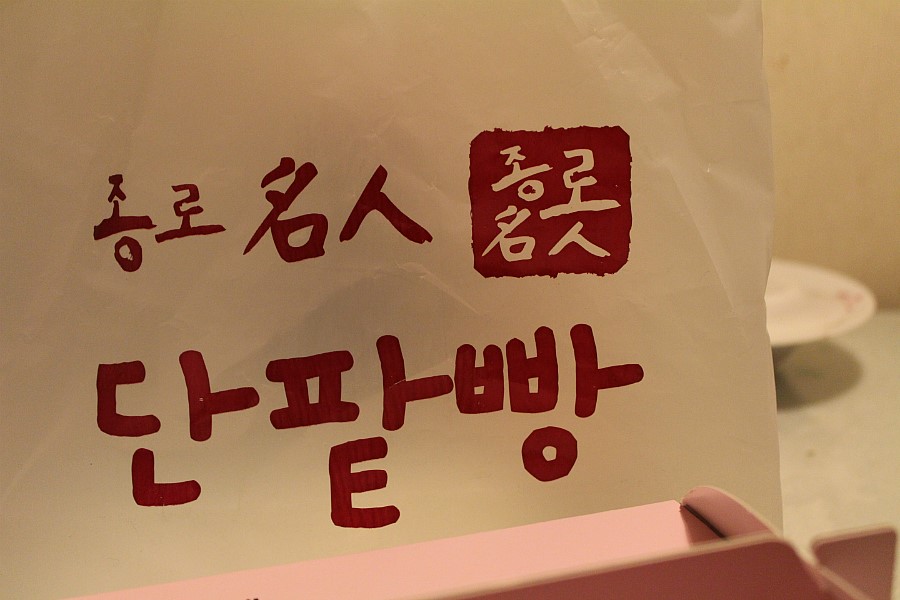 종로 名人
종로
名人
단팥빵